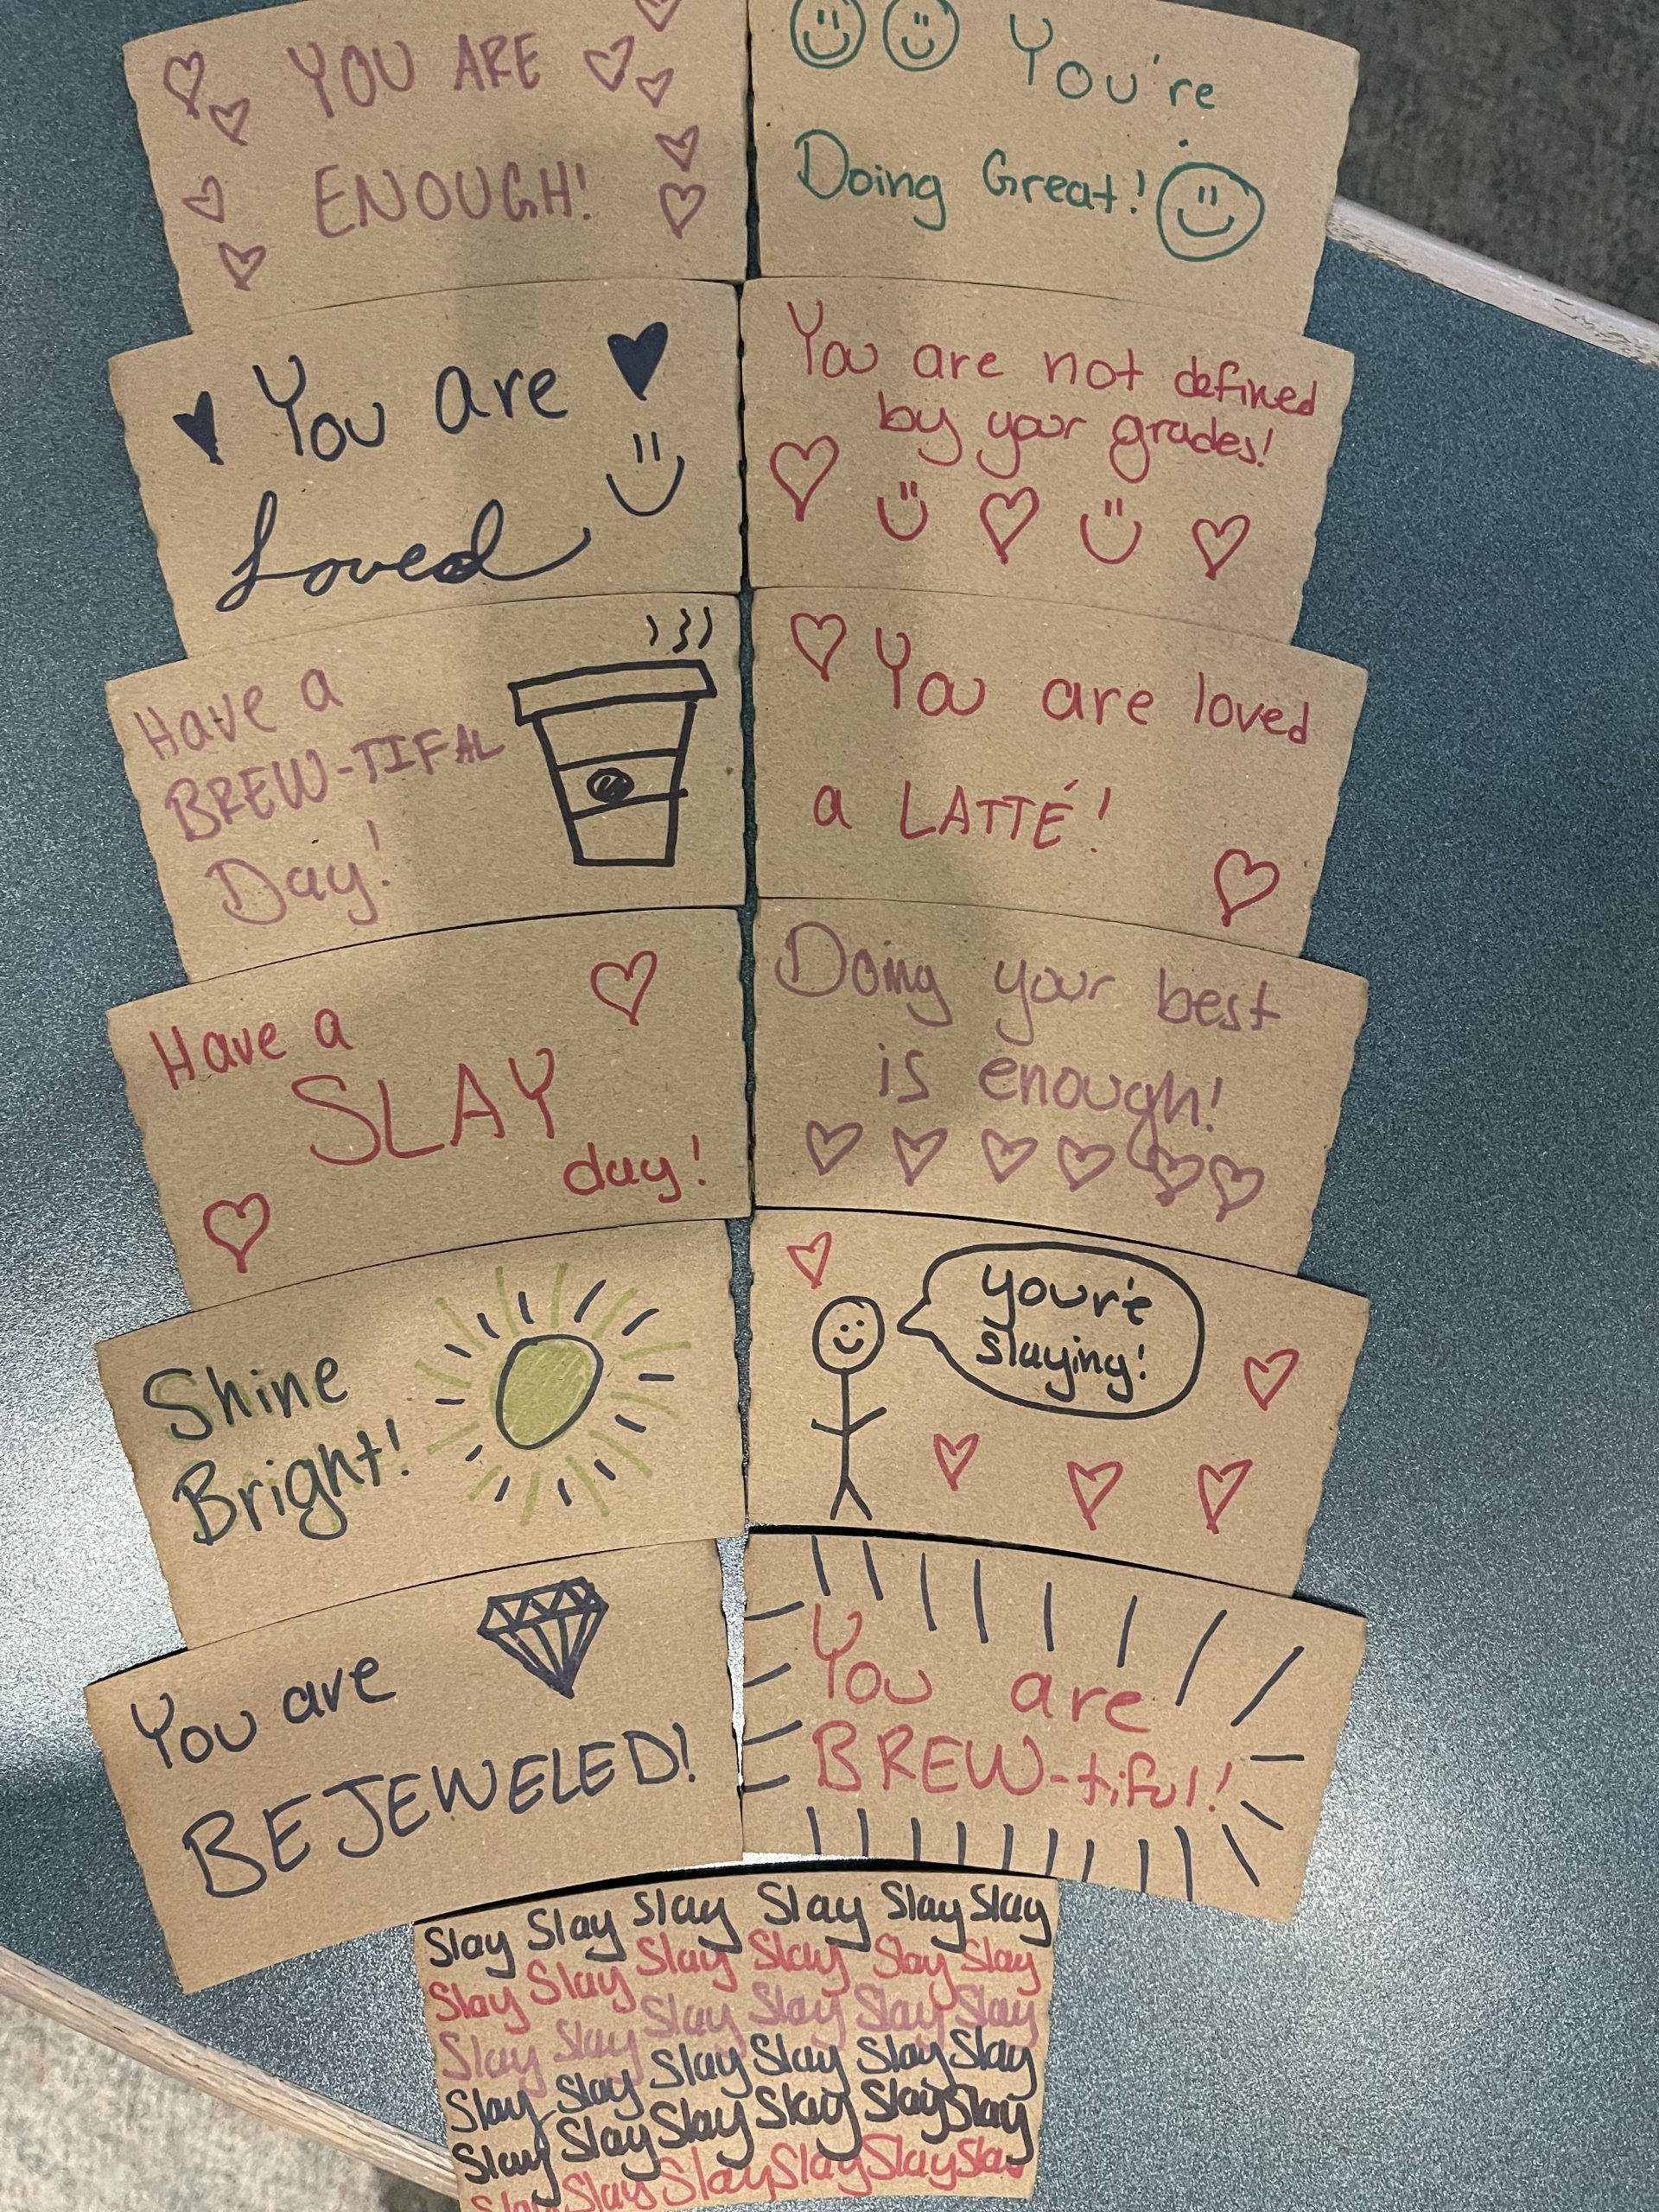 YOU ARE
ENOUGH!
You're
Doing Great!
You are
Loved
You are not defined
by your grades!
Have a
BREW-TIFAL
Day!
You are loved
a LATTÉ!
Have a
SLAY
day!
Doing your best
is enough!
Shine
Bright!
your'e
slaying!
You are
BEJEWELED!
You are
BREW-tiful!
Slay Slay Slay Slay Slay Slay
Slay Slay Slay Slay Slay Slay
Slay Slay Slay Slay Slay Slay
Slay Slay Slay Slay Slay Slay
Slay Slay Slay Slay Slay Slay
Slay Slay Slay Slay Slay Slay